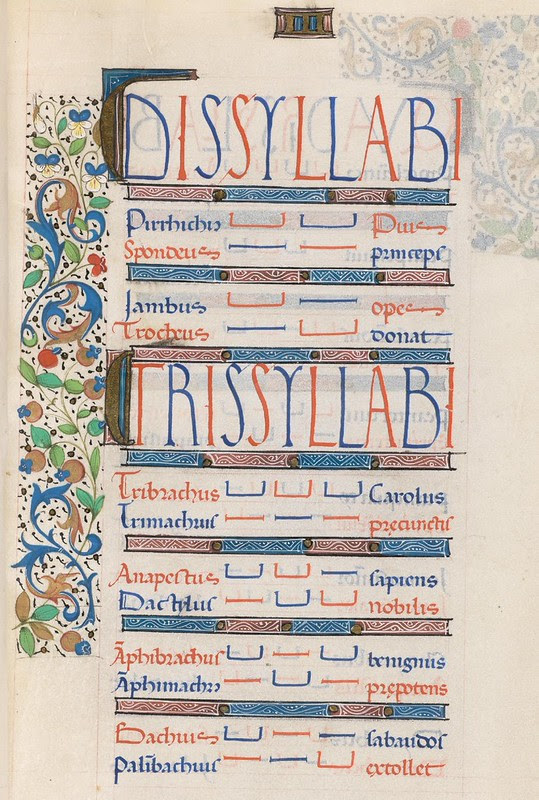 DISSYLLABI
Pirrhichius Pius
Spondeus princeps
Jambus opes
Trocheus donat
TRISSYLLABI
Tribrachus Carolus
Trimachus pręcunctis
Anapestus sapiens
Dactylus nobilis
Āphibrachus benignus
Āphimachus prępotens
Bachius sabaudos
Palībachius extollet